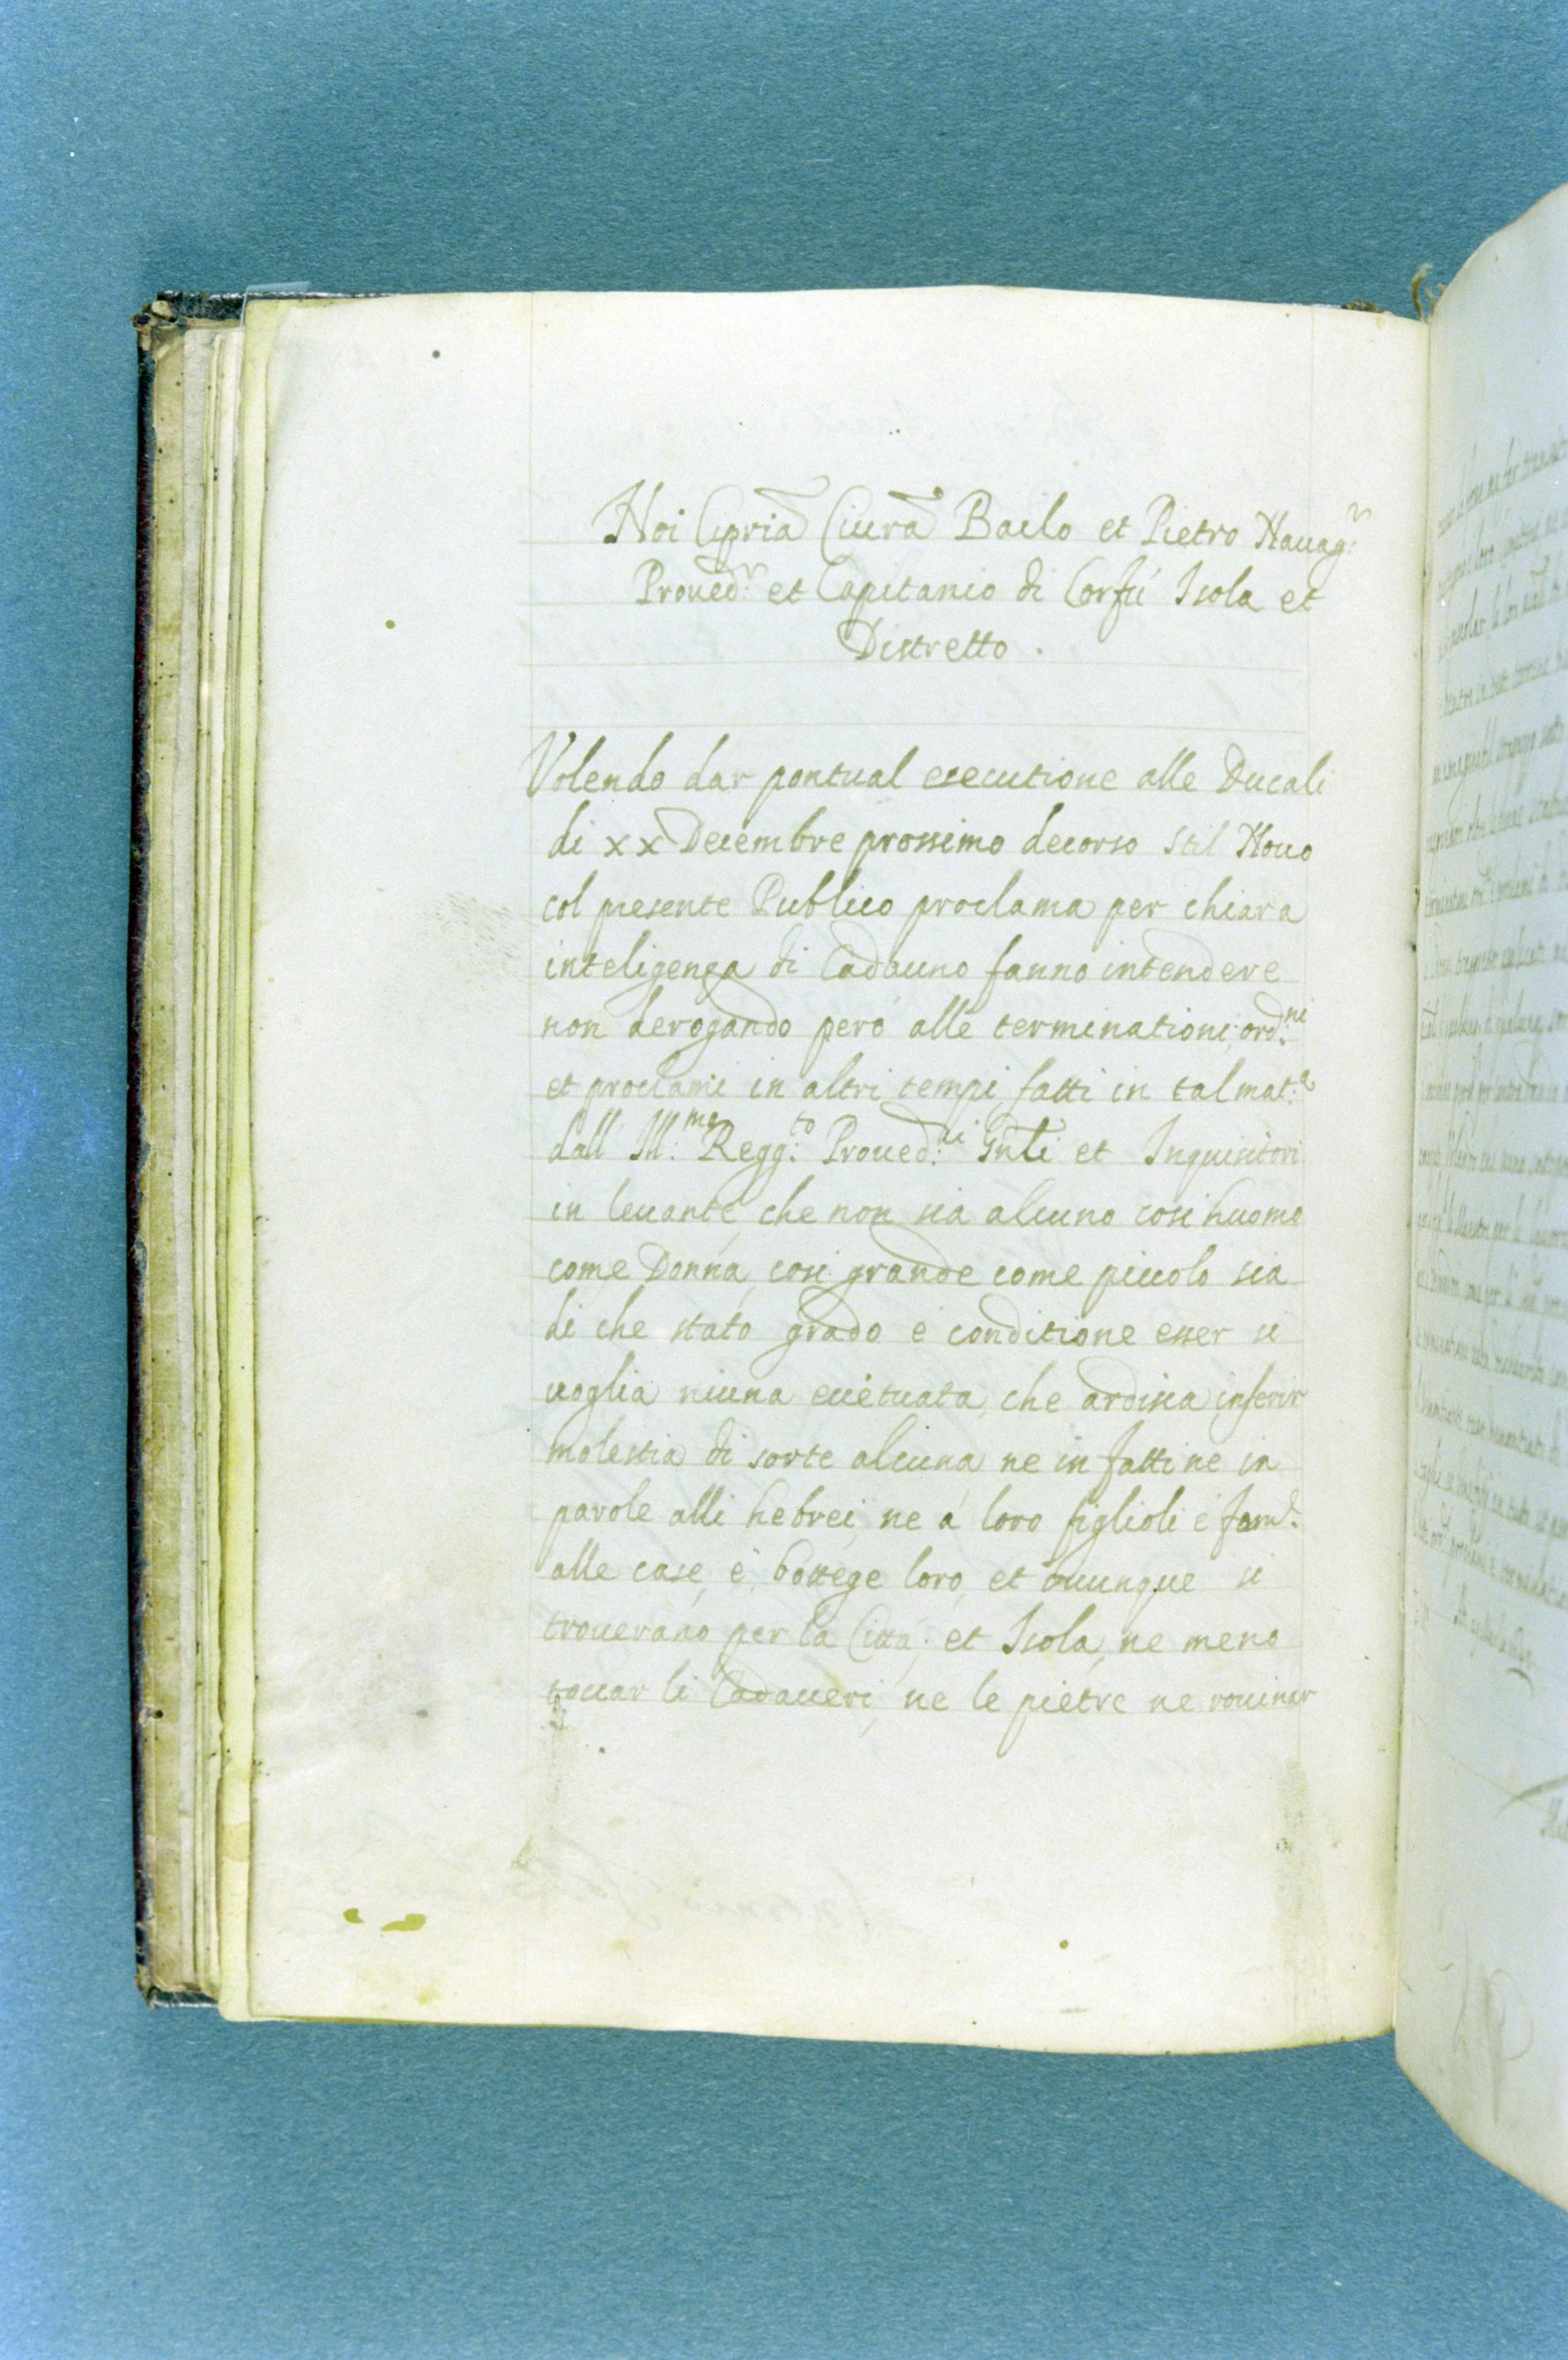 Noi Cipriã Ciurã Bailo et Pietro Nauag:r
Proued:r et Capitanio di Corfú Isola et
Distretto.
Volendo dar pontual esecutione alle Ducali
di xx Decembre prossimo decorso stil Nouo
col presente Publico proclama per chiara
inteligenza di Cadauno fanno intendere
non derogando peró alle terminationi, ord:ni
et proclami in altri tempi fatti in tal mat:a
dall Ill:mo Regg:to Proued:ri Gnli et Inquisitori
in leuante, che non sia alcuno cosi huomo
come Donna, cosi grande come piccolo sia
di che stato grado e conditione esser si
uoglia niuna ecietuata, che ardisca inferir
molestia di sorte alcuna ne in fatti ne in
parole alli hebrei, ne á loro figlioli é fam:
alle case, é bottege loro, et ouunque si
trouerano per la Cittá, et Isola, ne meno
toccar li Cadaueri, ne le pietre ne rouinar